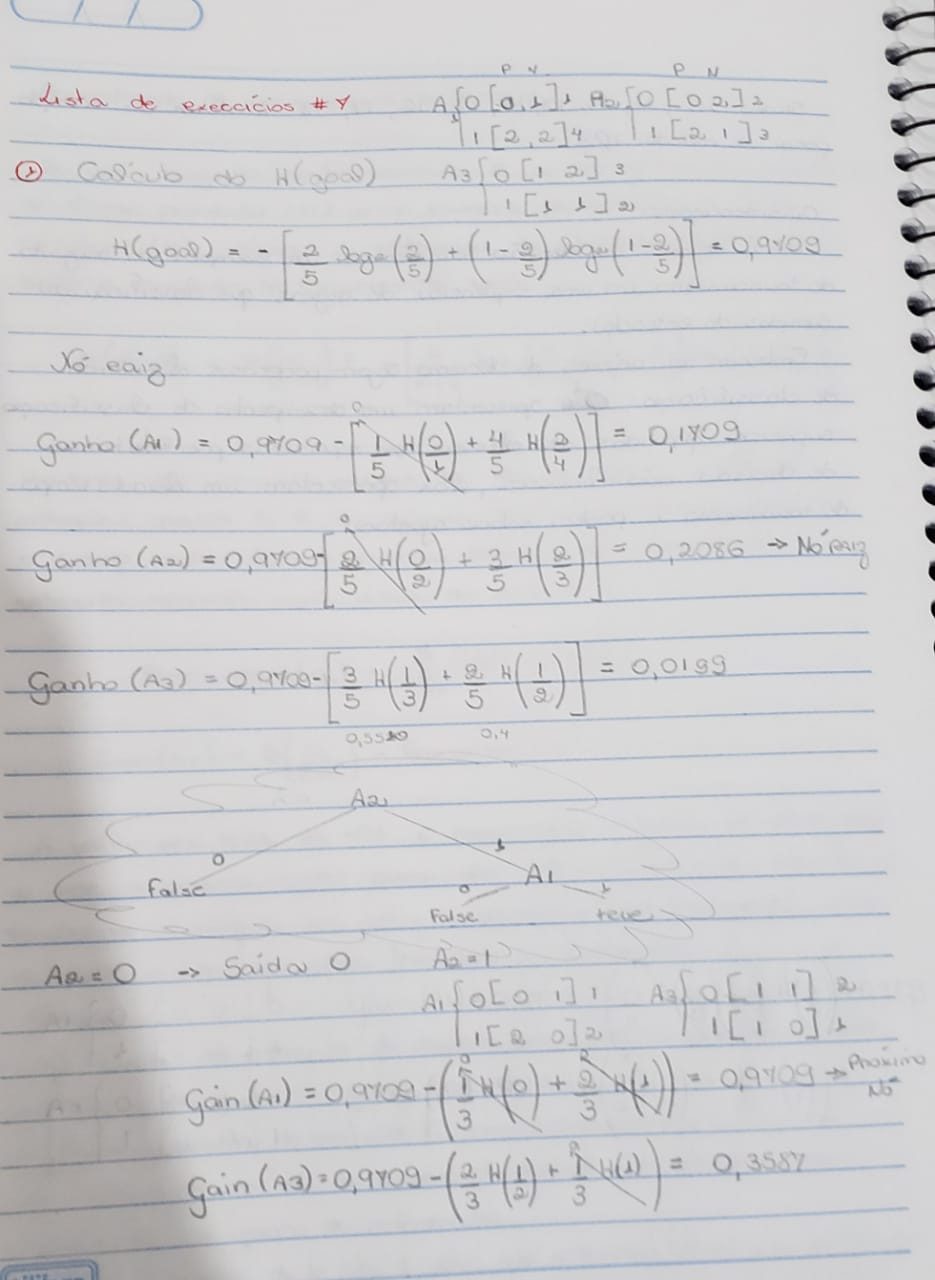 P N P N
Lista de exercícios #7 A1{0 [0, 1] 1 A2{0 [0 2] 2
1 [2, 2] 4 1 [2 1] 3
① Calculo do H(goal) A3{0 [1 2] 3
1 [1 1] 2
H(goal) = - [2/5 log₂(2/5) + (1-2/5) log₂(1-2/5)] = 0,9709
Nó raiz
0
Ganho (A1) = 0,9709 - [1/5 H(0/1) + 4/5 H(2/4)] = 0,1709
0
Ganho (A2) = 0,9709 - [2/5 H(0/2) + 3/5 H(2/3)] = 0,2086 → Nó raiz
Ganho (A3) = 0,9709 - [3/5 H(1/3) + 2/5 H(1/2)] = 0,0199
0,4
A2
0 1
False A1
0 1
False true
A2 = 0 → Saída 0 A2 = 1
A1{0 [0 1] 1 A3{0 [1 1] 2
1 [2 0] 2 1 [1 0] 1
Gain (A1) = 0,9709 - (1/3 H(0) + 2/3 H(1)) = 0,9709 → Próximo
Nó
Gain (A3) = 0,9709 - (2/3 H(1/2) + 1/3 H(1)) = 0,3587